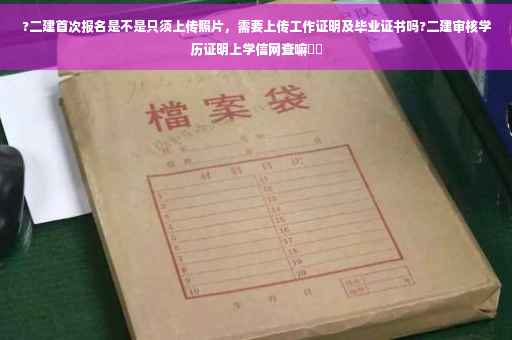 ?二建首次报名是不是只须上传照片，需要上传工作证明及毕业证书吗?二建审核学
历证明上学信网查嘛
檔案袋
材料目次
1 11
2 12
3 13
4 14
5 15
6 16
7 17
8 18
9 19
10 20
年 月 日